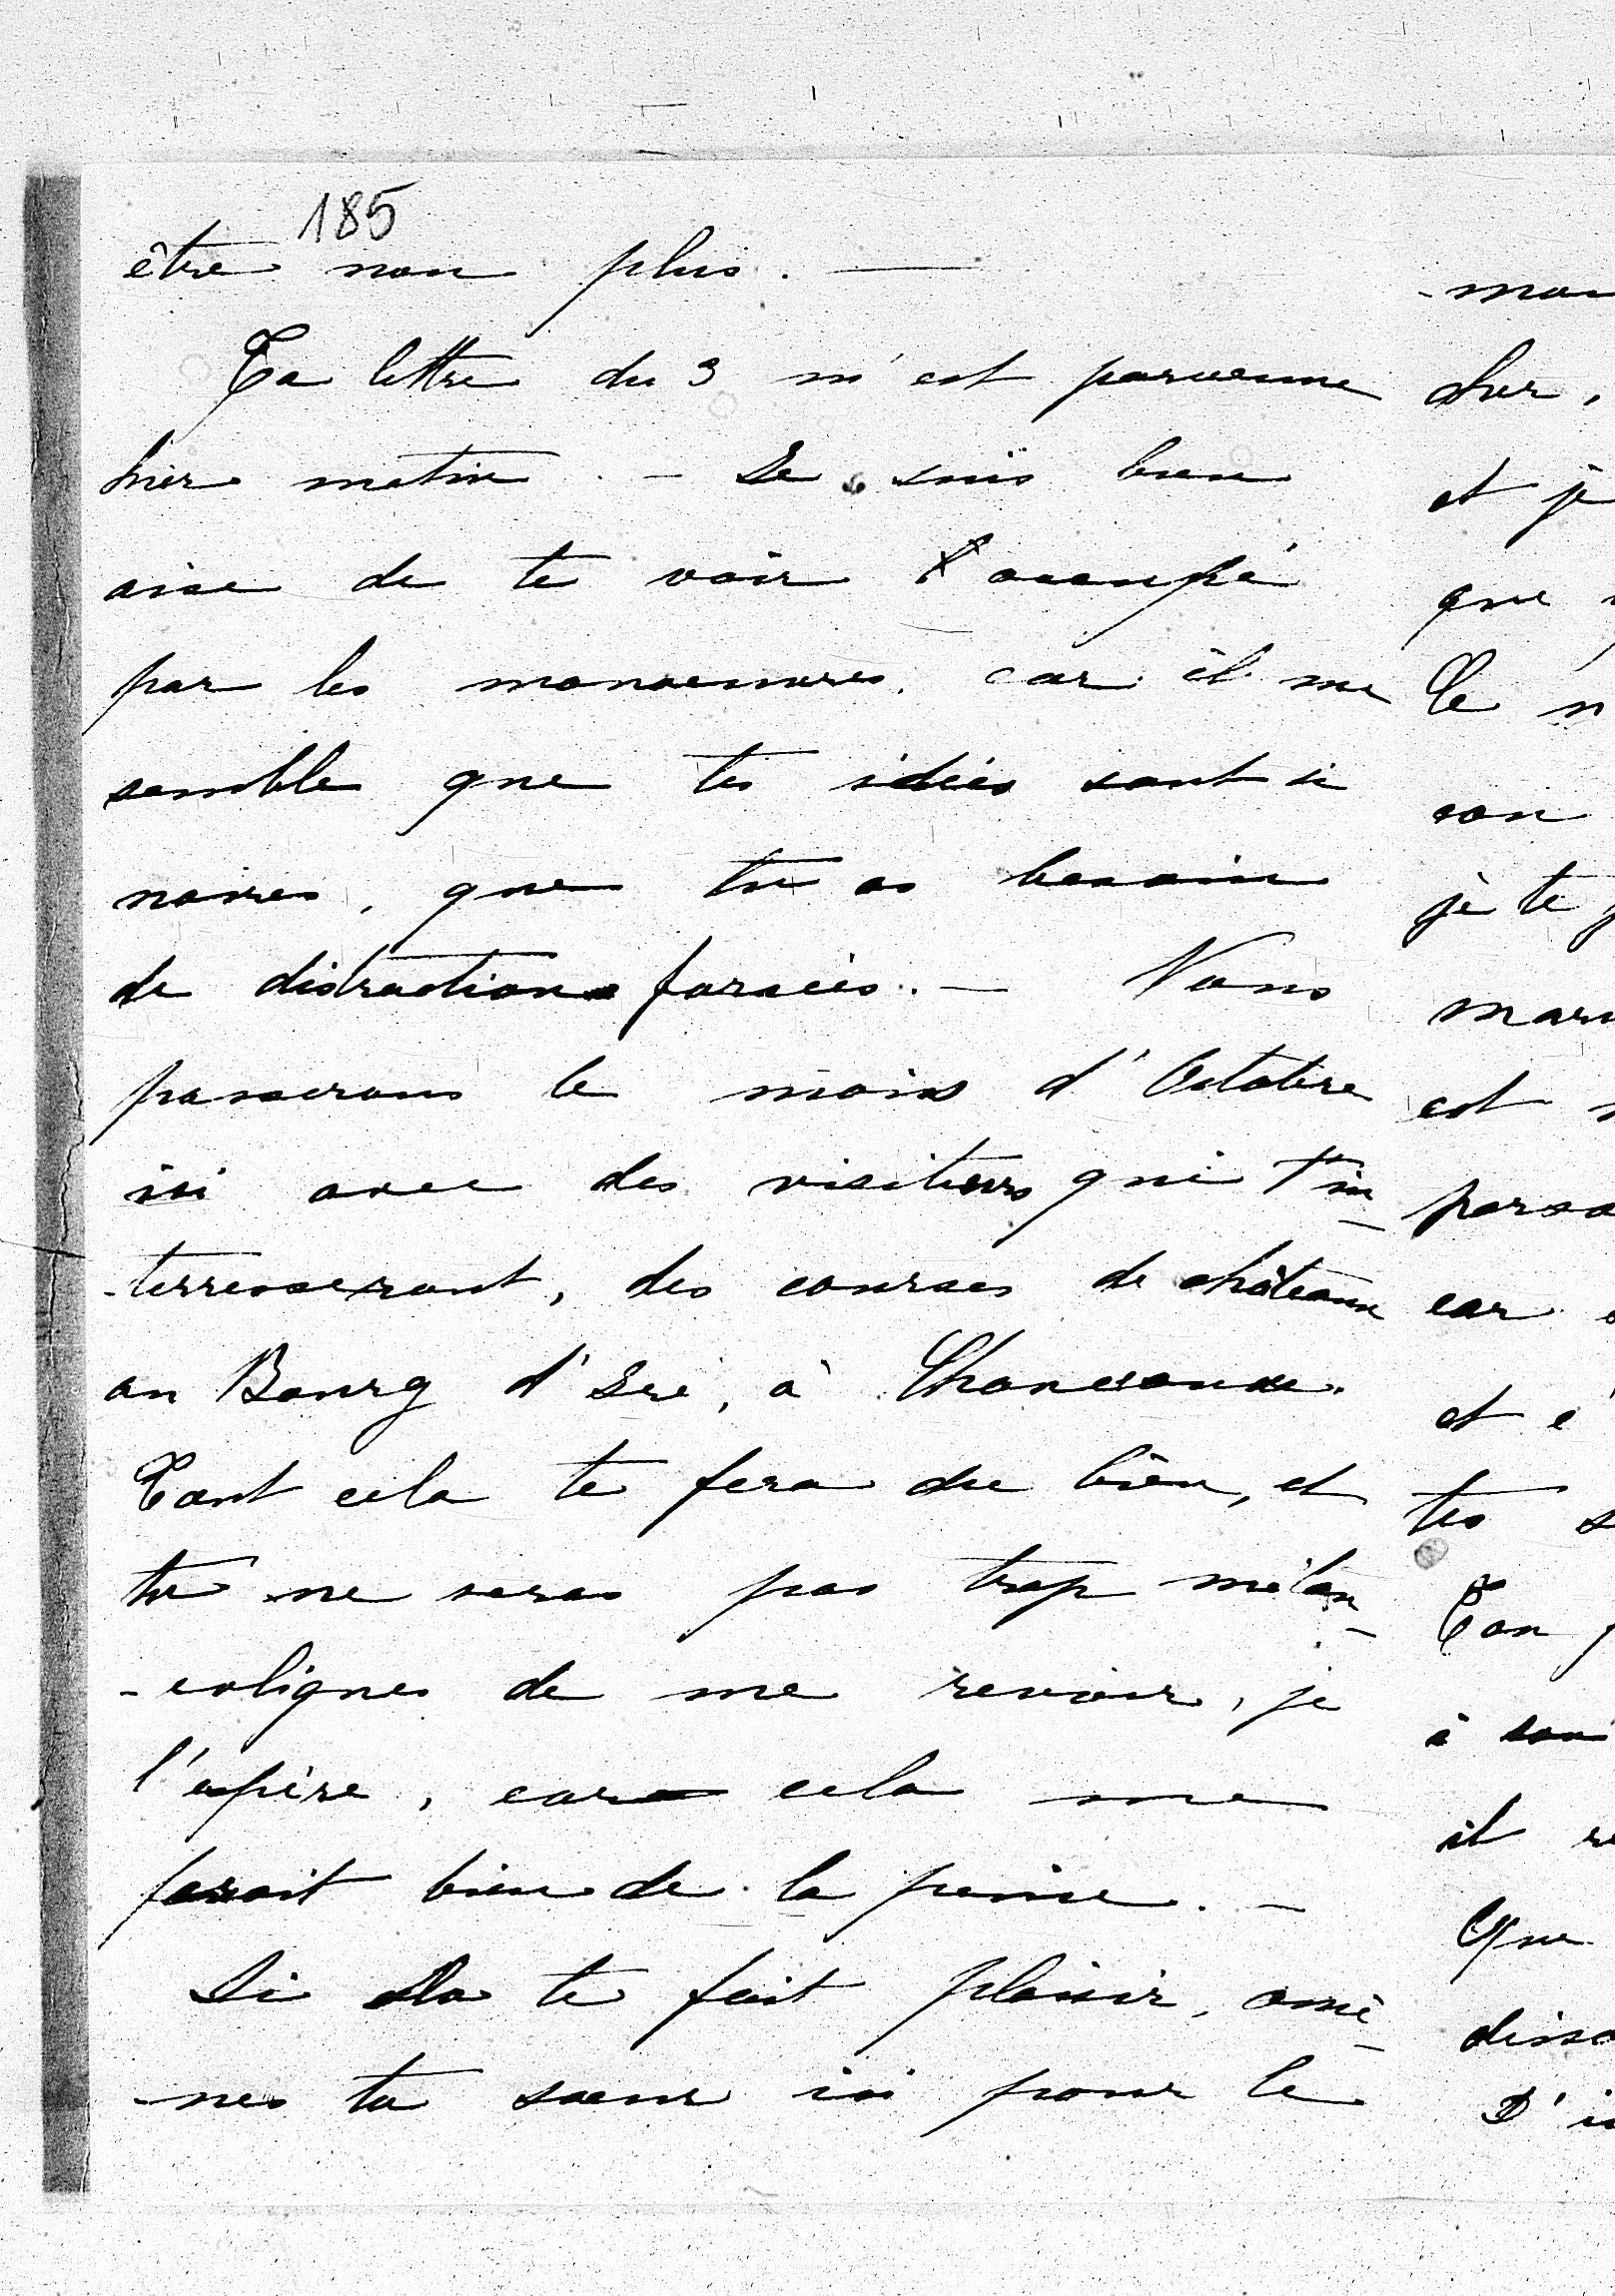 185
être non plus. —
Ta lettre du 3 m'est parvenue
hier matin. — Je suis bien
aise de te voir occupé
par les manœuvres, car il me
semble que tes idées sont si
noires, que tu as besoin
de distractions forcées. — Nous
passerons le mois d'Octobre
ici avec des visiteurs qui t'in-
-terresseront, des courses de châteaux
au Bourg d'Iré, à
Tout cela te fera du bien, et
tu ne seras pas trop mélan-
-coliques de me revoir, je
l'espère, car cela me
ferait bien de la peine. —
Si cela te fait plaisir, amè-
-nes ta sœur ici pour le
-mon
et je
que
Ce n
son
je te
est
perso
car
et
tes s
Ton
à son
il re
Que
disso
D'in